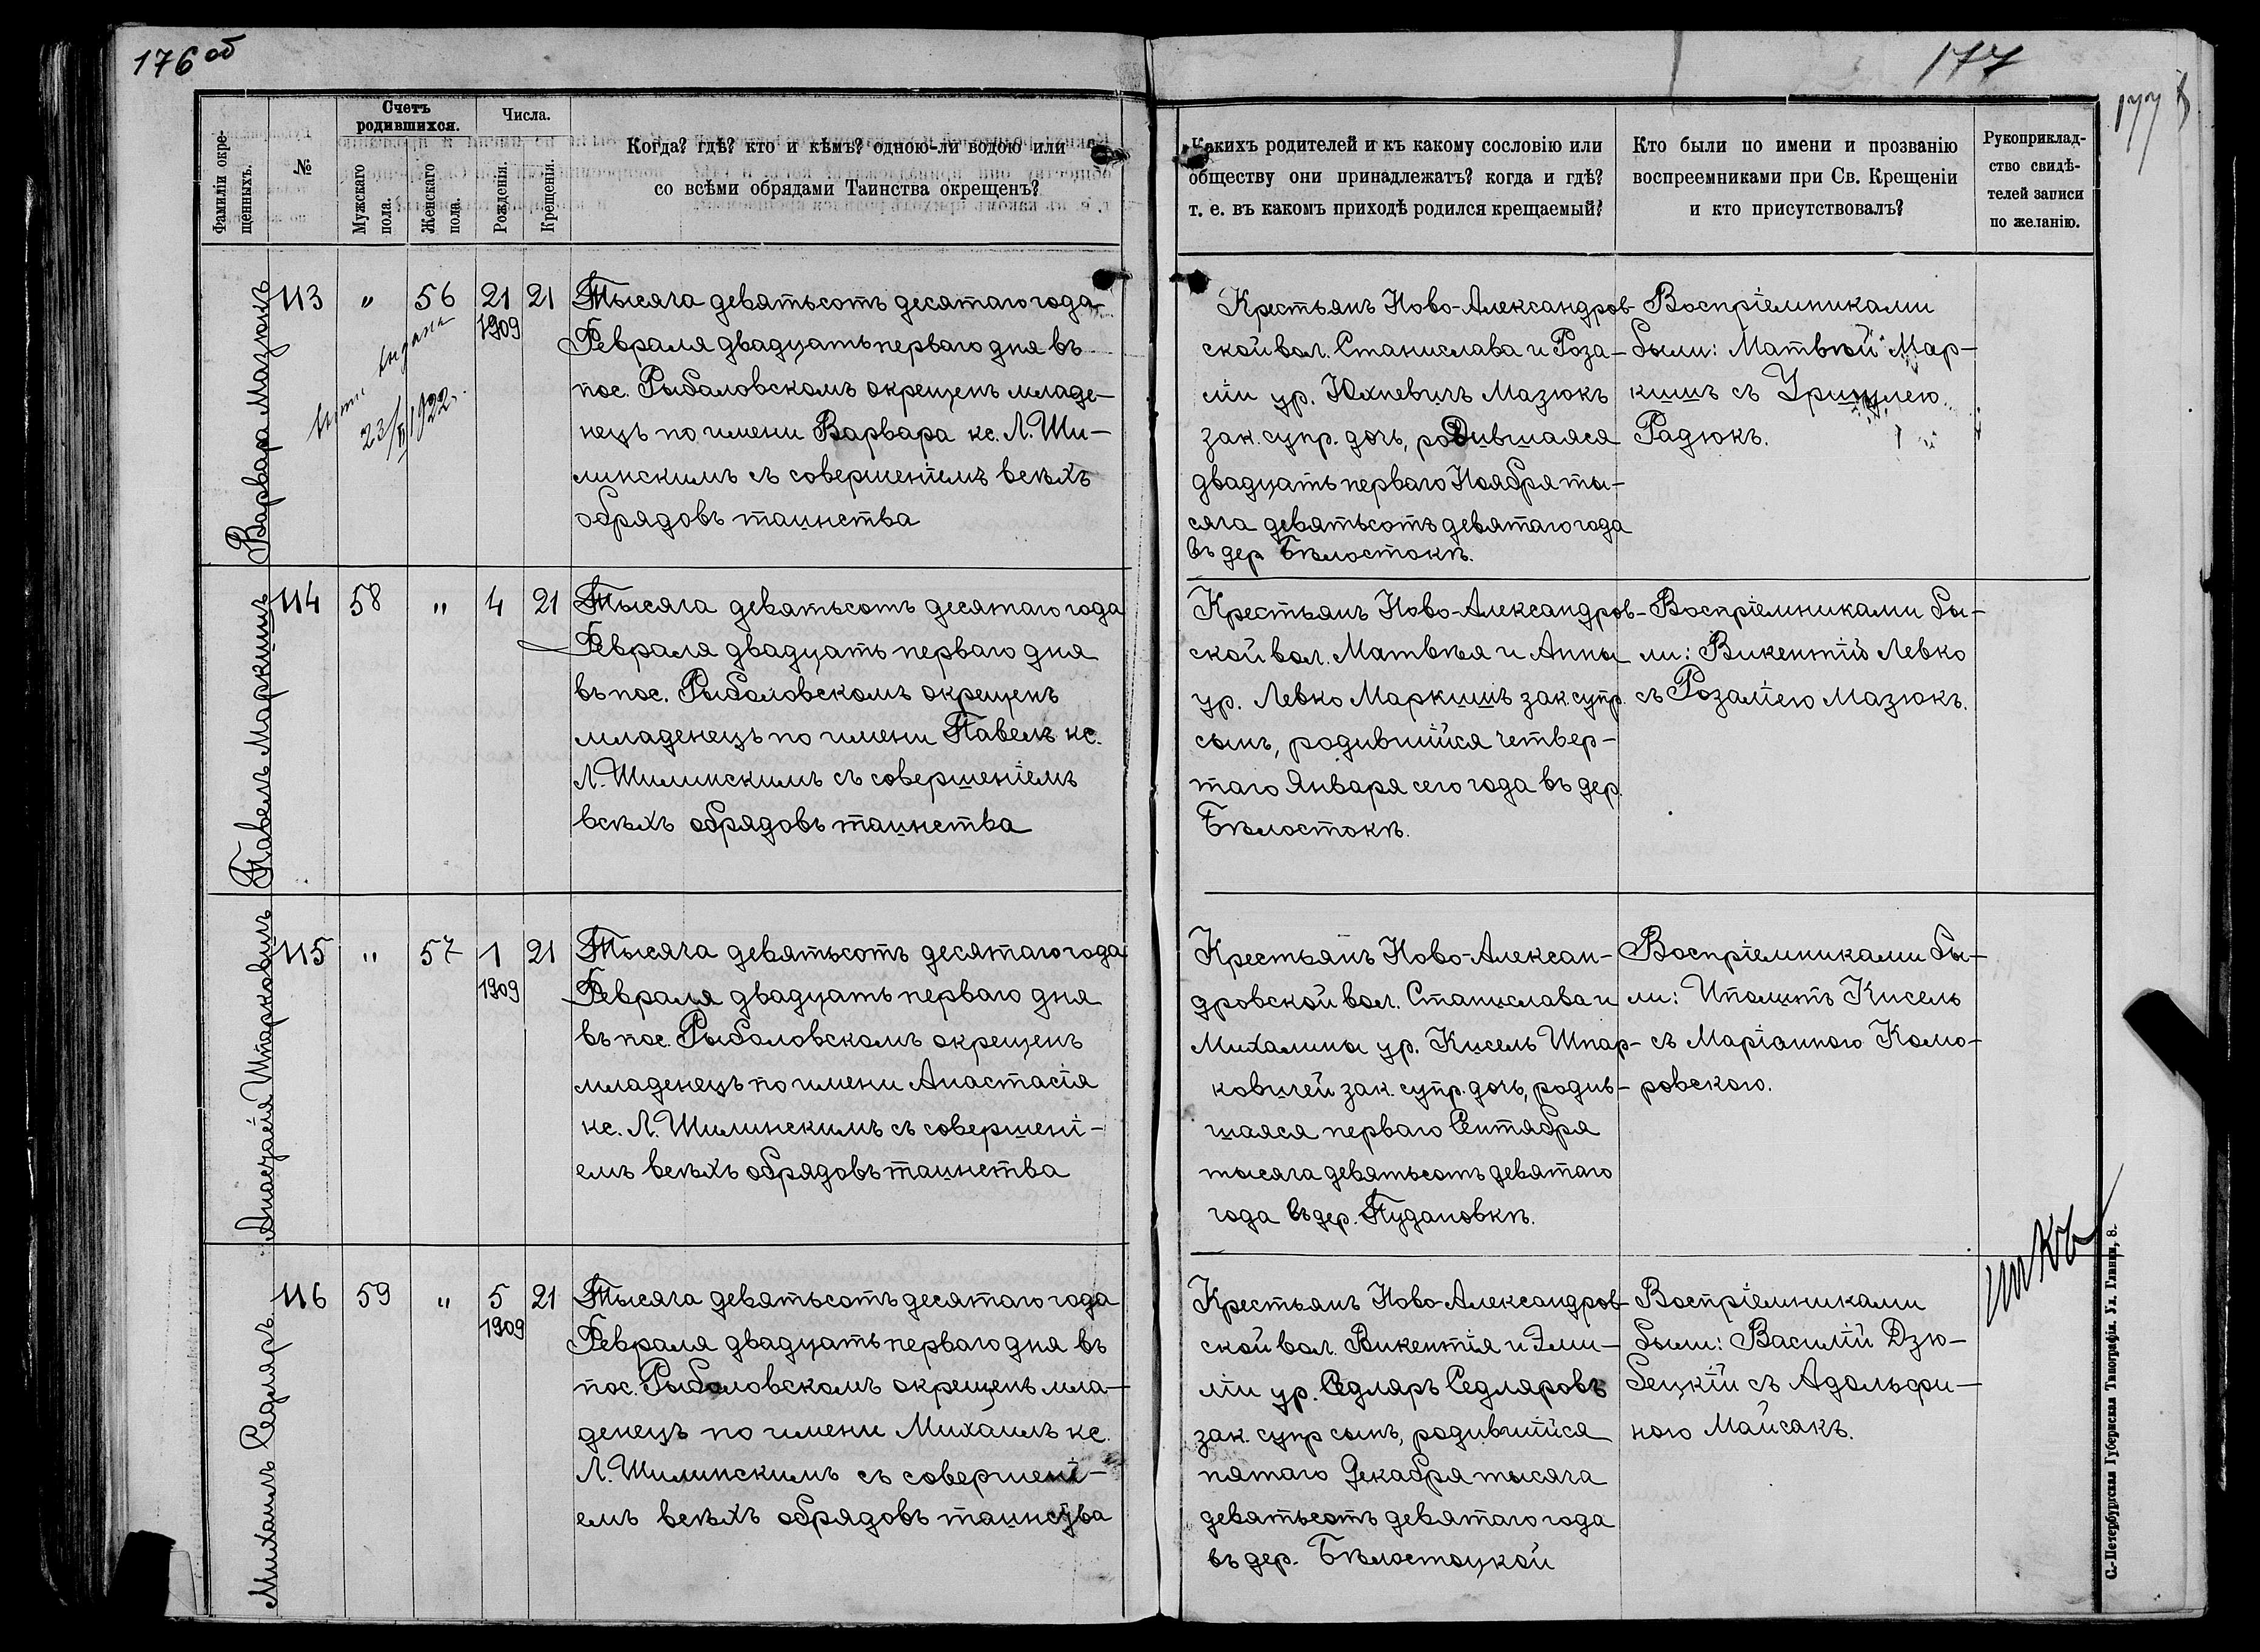 176 об
177
177
Фамиліи окре-
щенныхъ.
№
Счетъ
родившихся.
Мужскаго
пола.
Женскаго
пола.
Числа.
Рожденія.
Крещенія.
Когда? гдѣ? кто и кѣмъ? одною-ли водою или
со всѣми обрядами Таинства окрещенъ?
Какихъ родителей и къ какому сословію или
обществу они принадлежатъ? когда и гдѣ?
т. е. въ какомъ приходѣ родился крещаемый?
Кто были по имени и прозванію
воспреемниками при Св. Крещеніи
и кто присутствовалъ?
Рукоприклад-
ство свидѣ-
телей записи
по желанію.
Варвара Мазюкъ
113 " 56 21 21
1909
выдана
23/II 1922 г.
Тысяча девятьсотъ десятаго года
Февраля двадцать перваго дня въ
пос. Рыбаловскомъ окрещенъ младе-
нецъ по имени Варвара кс. Л. Ши-
линскимъ съ совершеніемъ всѣхъ
обрядовъ таинства
Крестьянъ Ново-Александров-
ской вол. Станислава и Роза-
ліи ур. Юхневичъ Мазюкъ
зак. супр. дочь, родившаяся
двадцать перваго Ноября ты-
сяча девятьсотъ девятаго года
въ дер Бѣлостокѣ.
Воспріемниками
были: Матвѣй Мар-
кишъ съ Уришулею
Радюкъ.
Павелъ Маркишъ
114 58 " 4 21
Тысяча девятьсотъ десятаго года
Февраля двадцать перваго дня
въ пос. Рыбаловскомъ окрещенъ
младенецъ по имени Павелъ кс.
Л. Шилинскимъ съ совершеніемъ
всѣхъ обрядовъ таинства
Крестьянъ Ново-Александров-
ской вол. Матвѣя и Анны
ур. Левко Маркишъ зак. супр.
сынъ, родившійся четвер-
таго Января сего года въ дер.
Бѣлостокѣ.
Воспріемниками бы-
ли: Викентій Левко
съ Розаліею Мазюкъ.
Анастасія Шпарковичъ
115 " 57 1 21
1909
Тысяча девятьсотъ десятаго года
Февраля двадцать перваго дня
въ пос. Рыболовскомъ окрещенъ
младенецъ по имени Анастасія
кс. Л. Шилинскимъ съ совершені-
емъ всѣхъ обрядовъ таинства
Крестьянъ Ново-Алексан-
дровской вол. Станислава и
Михалины ур. Кисель Шпар-
ковичей зак. супр. дочь, родив-
шаяся перваго Сентября
тысяча девятьсотъ девятаго
года въ дер. Пудановкѣ.
Воспріемниками бы-
ли: Иполитъ Кисель
съ Маріанною Комо-
ровскою.
Михаилъ Седляръ
116 59 " 5 21
1909
Тысяча девятьсотъ десятаго года
Февраля двадцать перваго дня въ
пос. Рыболовскомъ окрещенъ мла-
денецъ по имени Михаилъ кс.
Л. Шилинскимъ съ совершені-
емъ всѣхъ обрядовъ таинства
Крестьянъ Ново-Александров-
ской вол. Викентія и Эми-
ліи ур. Седляръ Седляровъ
зак. супр сынъ, родившійся
пятаго Декабря тысяча
девятьсотъ девятаго года
въ дер. Бѣлостоцкой
Воспріемниками
были: Василій Дзю-
бецкій съ Адольфи-
ною Майсакъ.
С.-Петербургская Губернская Типографія. Ул. Глинки, 8.